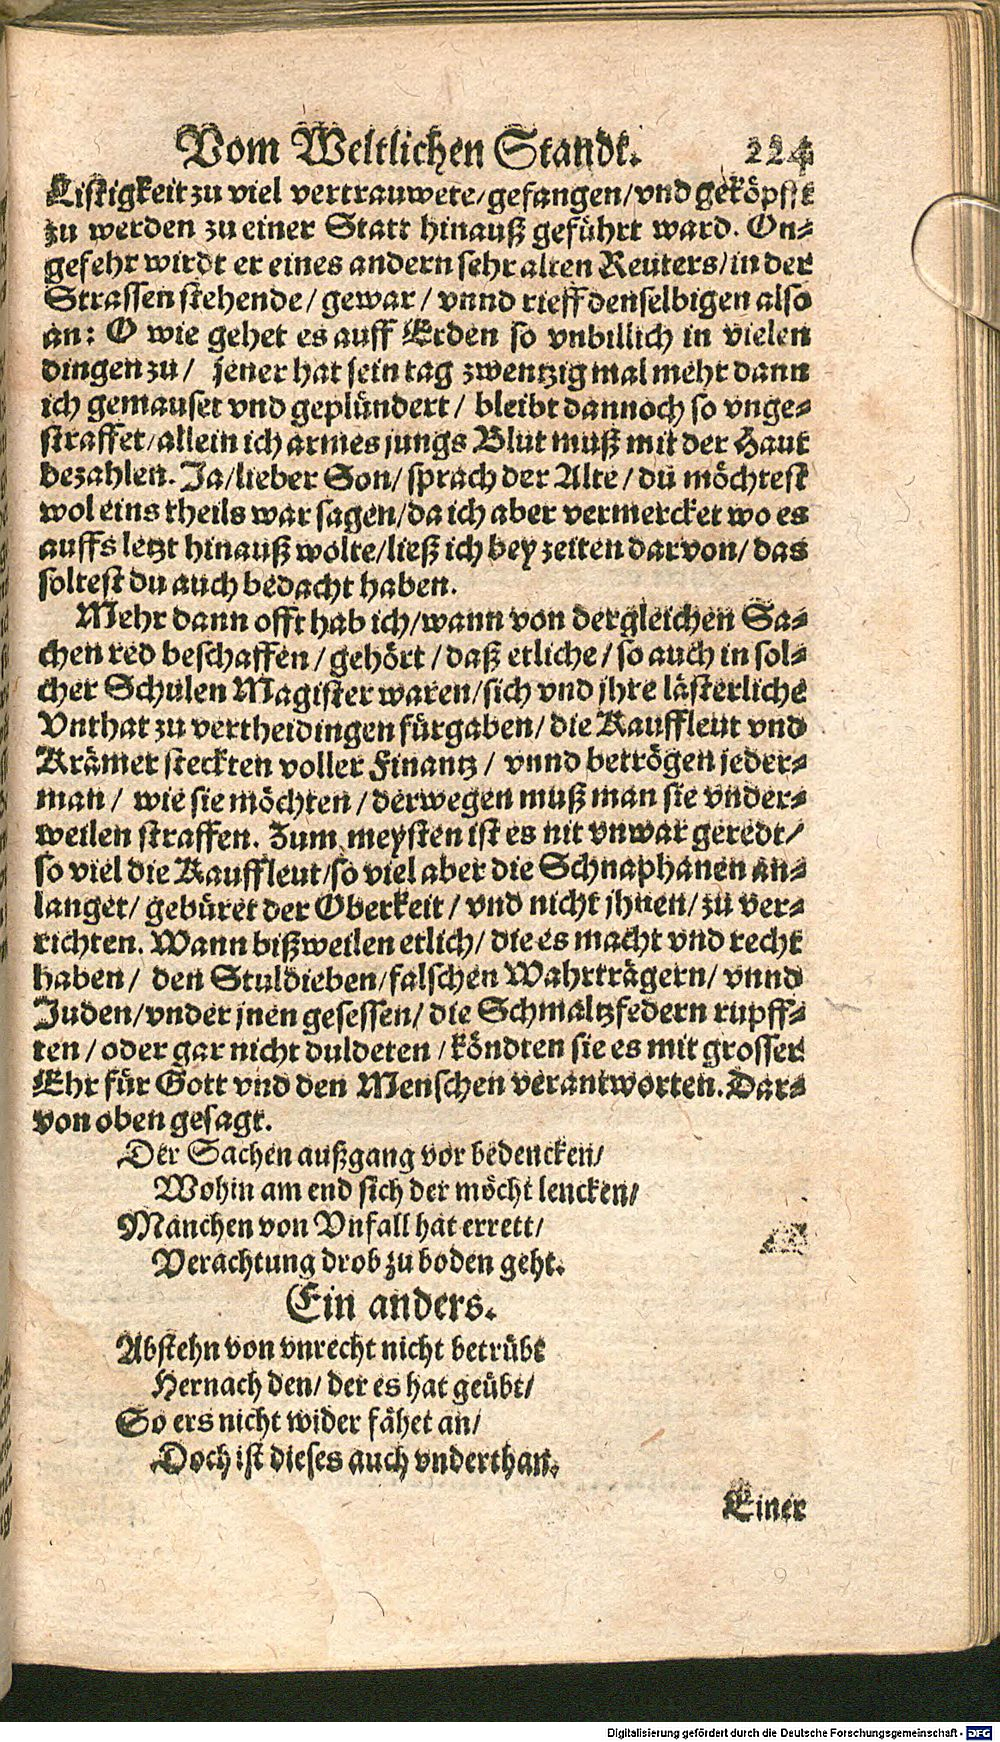 Vom Weltlichen Standt. 224
Listigkeit zu viel vertrauwete/ gefangen/ vnd geköpfft
zu werden zu einer Statt hinauß geführt ward. On-
gefehr wirdt er eines andern sehr alten Reuters/ in der
Strassen stehende/ gewar/ vnnd rieff denselbigen also
an: O wie gehet es auff Erden so vnbillich in vielen
dingen zu/ jener hat sein tag zwentzig mal mehr dann
ich gemauset vnd geplündert/ bleibt dannoch so vnge-
straffet/ allein ich armes jungs Blut muß mit der Haut
bezahlen. Ja/ lieber Son/ sprach der Alte/ du möchtest
wol eins theils war sagen/ da ich aber vermercket wo es
auffs letzt hinauß wolte/ ließ ich bey zeiten darvon/ das
soltest du auch bedacht haben.
Mehr dann offt hab ich/ wann von dergleichen Sa-
chen red beschaffen/ gehört/ daß etliche/ so auch in sol-
cher Schulen Magister waren/ sich vnd jhre lästerliche
Vnthat zu vertheidingen fürgaben/ die Kauffleut vnd
Krämer steckten voller Finantz/ vnnd betrögen jeder-
man/ wie sie möchten/ derwegen muß man sie vnder-
weilen straffen. Zum meysten ist es nit vnwar geredt/
so viel die Kauffleut/ so viel aber die Schnaphanen an-
langet/ gebüret der Oberkeit/ vnd nicht jhnen/ zu ver-
richten. Wann bißweilen etlich/ die es macht vnd recht
haben/ den Stuldieben/ falschen Wahrträgern/ vnnd
Juden/ vnder jnen gesessen/ die Schmaltzfedern rupff-
ten/ oder gar nicht duldeten/ köndten sie es mit grosser
Ehr für Gott vnd den Menschen verantworten. Dar-
von oben gesagt.
Der Sachen außgang vor bedencken/
Wohin am end sich der möcht lencken/
Manchen von Vnfall hat errett/
Verachtung drob zu boden geht.
Ein anders.
Abstehn von vnrecht nicht betrübt
Hernach den/ der es hat geübt/
So ers nicht wider fähet an/
Doch ist dieses auch vnderthan.
Einer
Digitalisierung gefördert durch die Deutsche Forschungsgemeinschaft - DFG